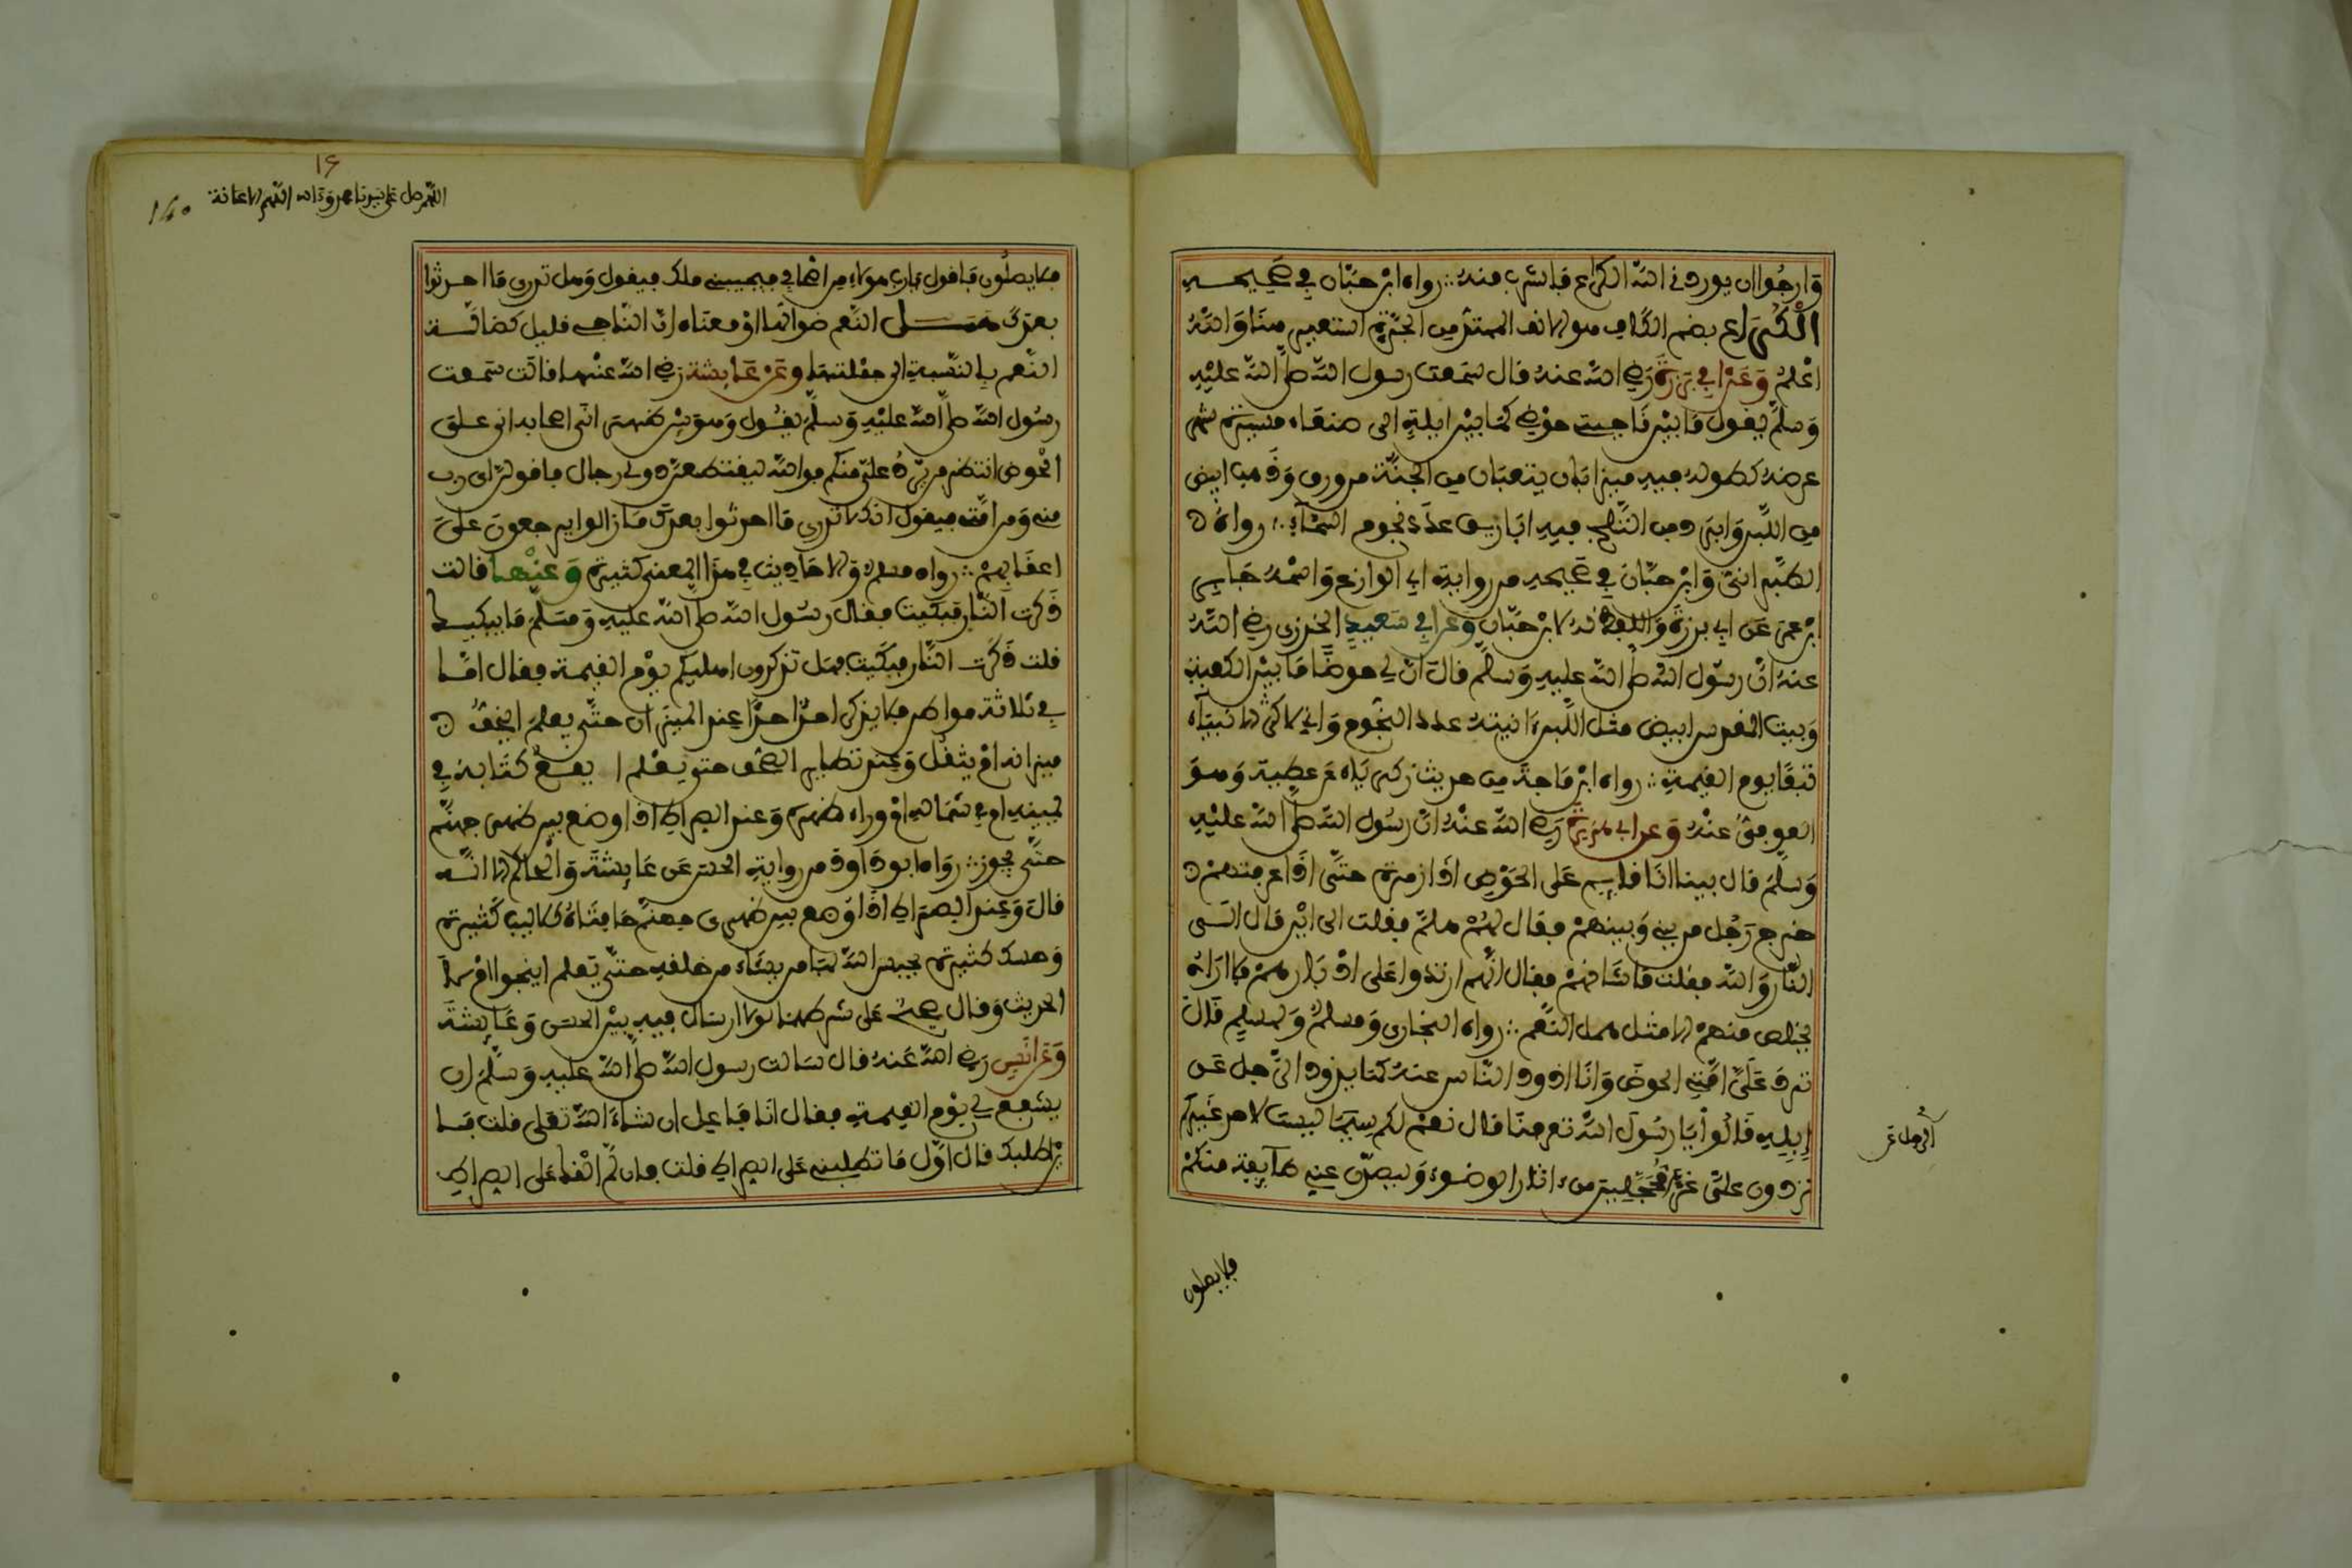 وارجوا ان يوردني الله الكراع فاشرب منه ∴ رواه ابن حبان في صحيحه
الكراع بضم الكاف هو الانف الممتد من الحرة استعير هنا والله
اعلم وعن ابي برزة رضي الله عنه قال سمعت رسول الله صلى الله عليه
وسلم يقول ما بين ناحيتي حوضي كما بين ايلة الى صنعاء مسيرة شهر
عرضه كطوله فيه ميزابان ينثعبان من الجنة من ورق وذهب ابيض
من اللبن وابرد من الثلج فيه اباريق عدد نجوم السماء ∴ رواه
الطبراني وابن حبان في صحيحه من رواية ابي الوازع واسمه جابر
بن عمرو عن ابي برزة واللفظ له لابن حبان وعن ابي سعيد الخدري رضي الله
عنه ان رسول الله صلى الله عليه وسلم قال ان لي حوضا ما بين الكعبة
وبيت المقدس ابيض مثل اللبن ءانيته عدد النجوم واني لاكثر الانبياء
تبعا يوم القيمة ∴ رواه ابن ماجة من حديث زكرياء عن عطية وهو
العوفي عنه وعن ابي هريرة رضي الله عنه ان رسول الله صلى الله عليه
وسلم قال بينا انا قايم على الحوض اذا زمرة حتى اذا عرفتهم
خرج رجل من بيني وبينهم فقال لهم هلم فقلت الى اين قال الى
النار والله فقلت ما شانهم فقال انهم ارتدوا على ادبارهم فلا اراه
يخلص منهم الا مثل همل النعم ∴ رواه البخاري ومسلم ولمسلم قال
ترد علي امتي الحوض وانا اذود الناس عنه كما يذود الرجل عن
إبله قالوا يا رسول الله تعرفنا قال نعم لكم سيما ليست لاحد غيركم
تردون علي غرا محجلين من ءاثار الوضوء وليصدن عني طايفة منكم
الرجل عن
فلا يصلون
١٤
اللهم صل على سيدنا محمد وءاله
140
فلا يصلون فاقول يا رب هولاء من اصحابي فيجيبني ملك فيقول وهل تدري ما احدثوا
بعدك همل النعم ضوالها او معناه ان الناجي قليل كضالة
النعم بالنسبة الى جملتها وعن عايشة رضي الله عنها قالت سمعت
رسول الله صلى الله عليه وسلم يقول وهو بين ظهري اصحابه اني على
الحوض انتظر من يرد علي منكم فوالله ليقتطعن دوني رجال فلاقولن اي رب
مني ومن امتي فيقول انك لا تدري ما احدثوا بعدك ما زالوا يرجعون على
اعقابهم ∴ رواه مسلم والاحاديث في هذا المعنى كثيرة وعنها قالت
ذكرت النار فبكيت فقال رسول الله صلى الله عليه وسلم ما يبكيك
قلت ذكرت النار فبكيت فهل تذكرون اهليكم يوم القيمة فقال اما
في ثلاثة مواطن فلا يذكر احد احدا عند الميزان حتى يعلم ايخف
ميزانه ام يثقل وعند تطاير الصحف حتى يعلم اين يقع كتابه في
يمينه ام في شماله او وراء ظهره وعند الصراط اذا وضع بين ظهري جهنم
حتى يجوز ∴ رواه ابو داود من رواية الحسن عن عايشة والحاكم الا انه
قال وعند الصراط اذا وضع بين ظهري جهنم حافتاه كلاليب كثيرة
وحسك كثيرة يحبس الله بها من يشاء من خلقه حتى يعلم اينجوا ام لا
الحديث وقال صحيح على شرطهما لولا ارسال فيه بين الحسن وعايشة
وعن انس رضي الله عنه قال سالت رسول الله صلى الله عليه وسلم ان
يشفع لي يوم القيمة فقال انا فاعل ان شاء الله تعلى قلت فا
ين اطلبك قال اول ما تطلبني على الصراط قلت فان لم القك على الصراط